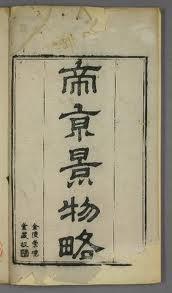 帝京景物略
金陵崇德
堂藏板